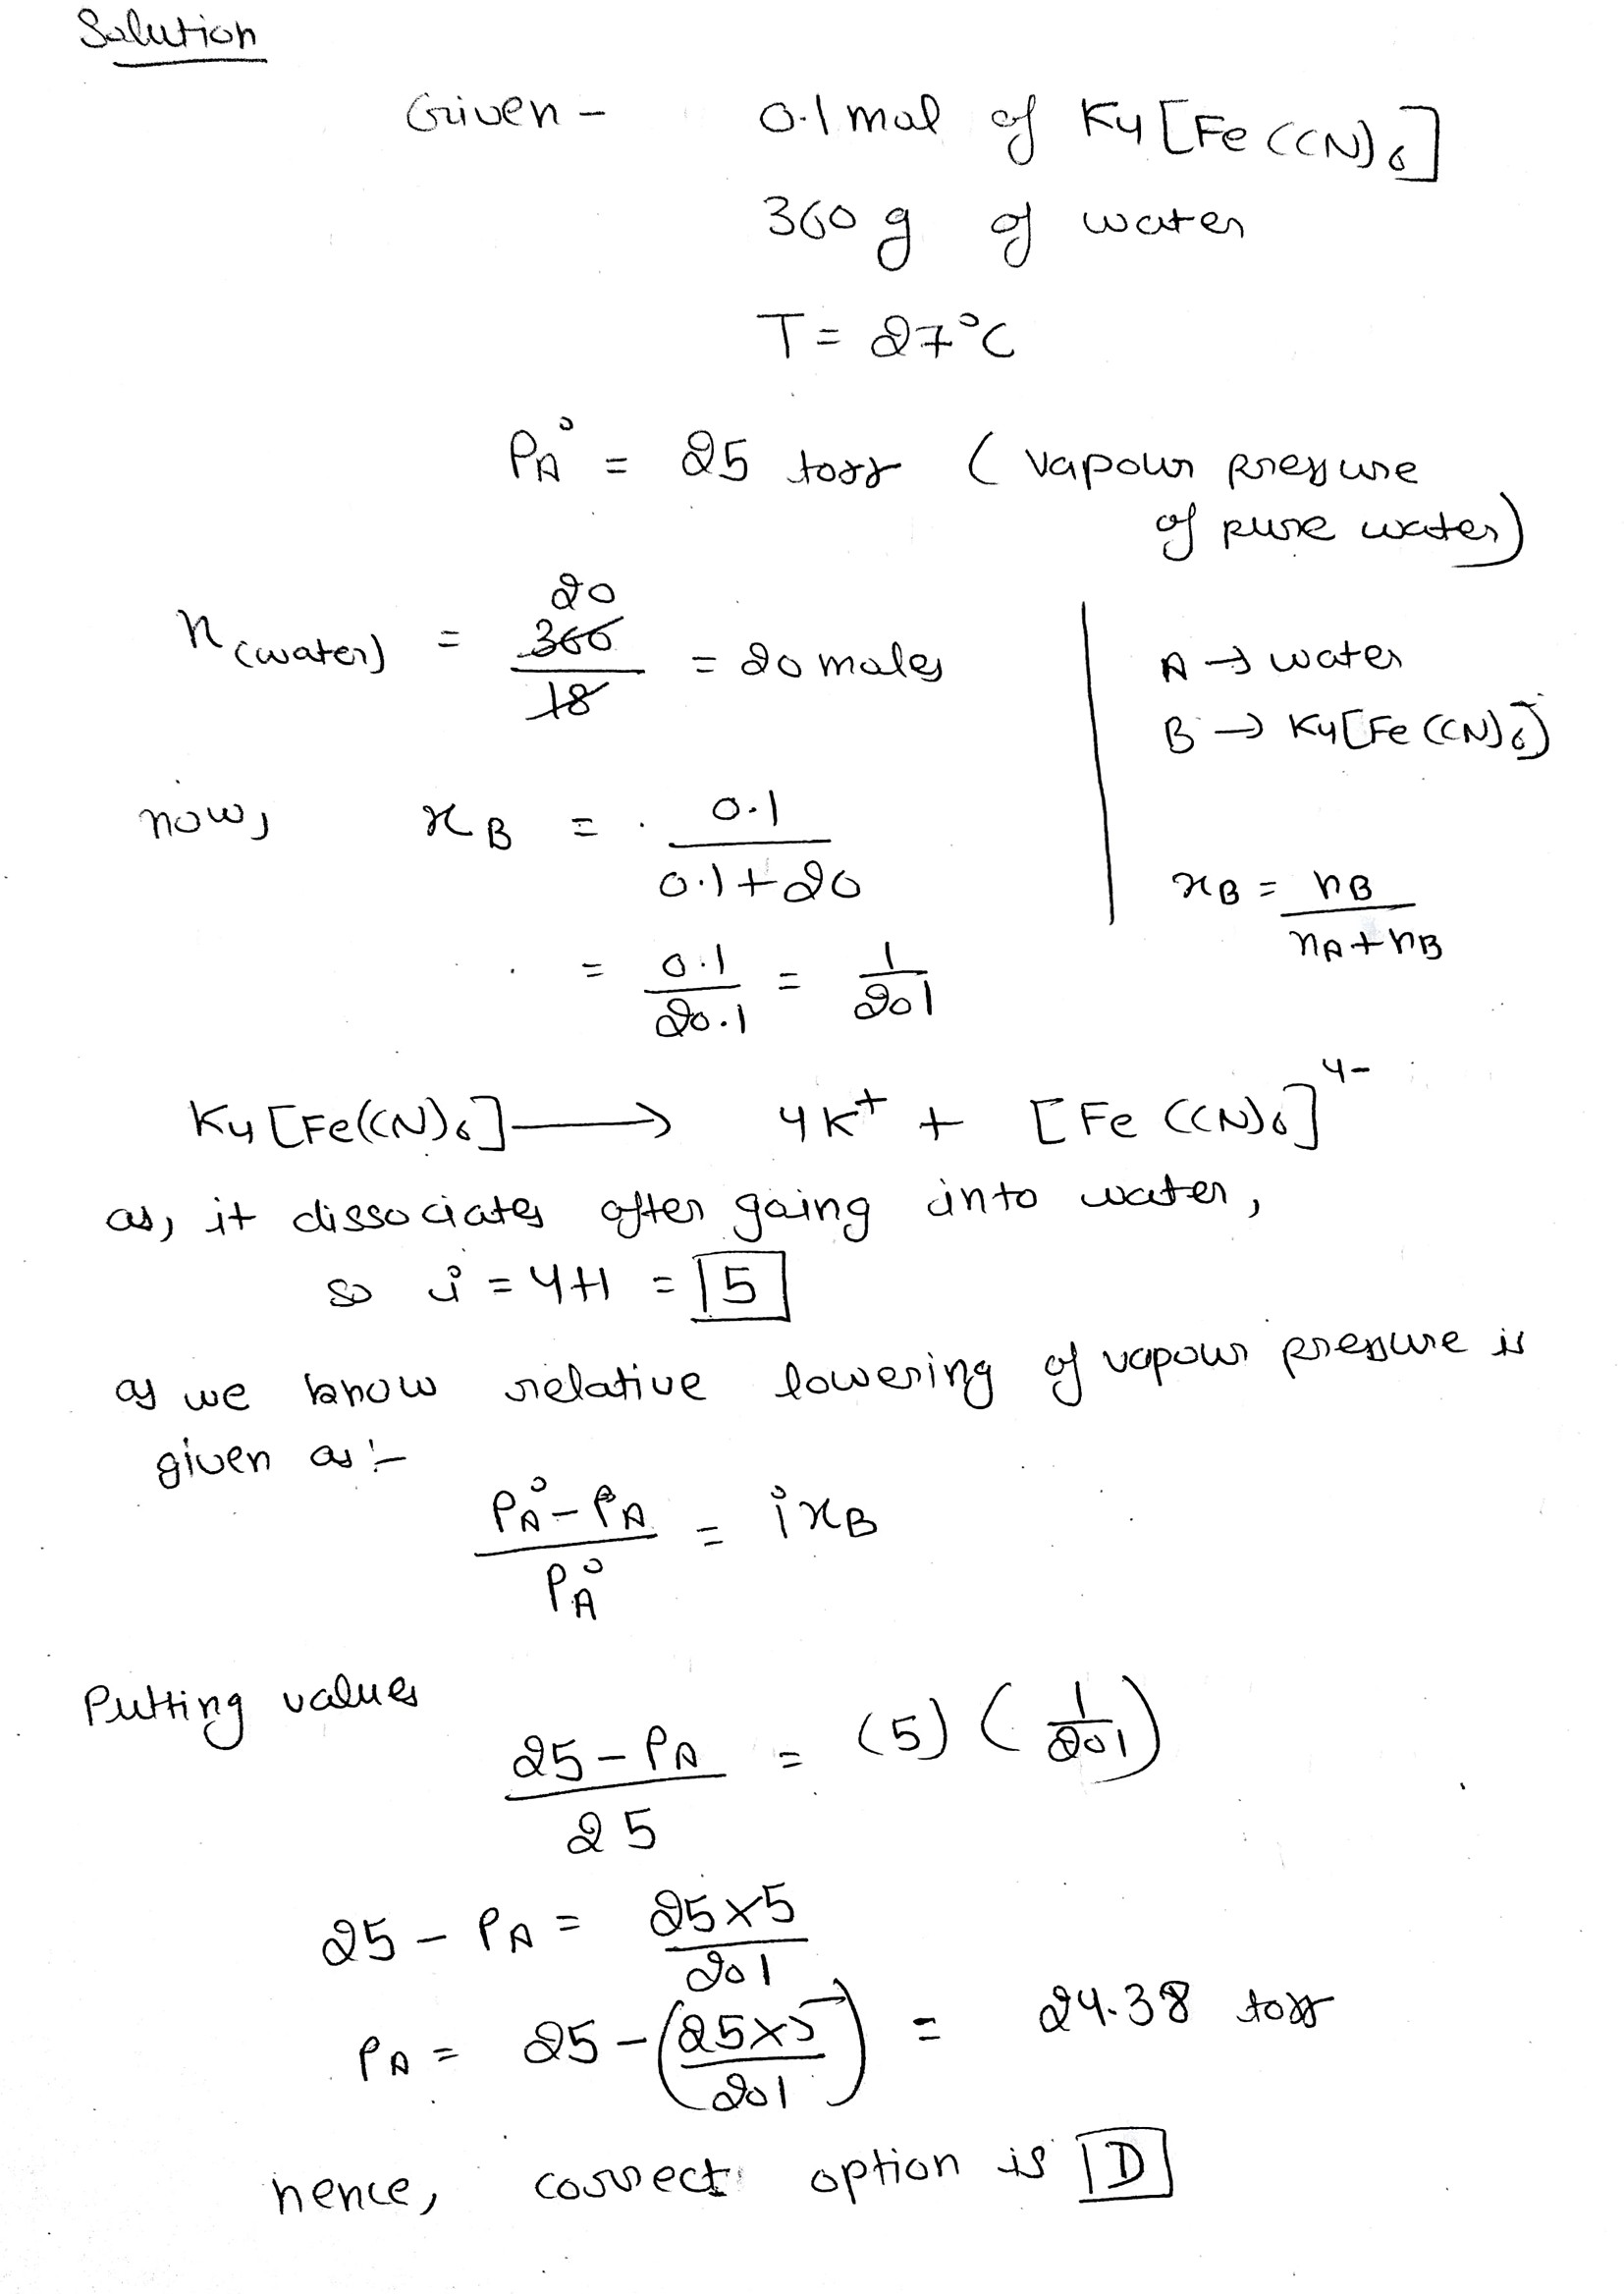 Solution
Given - 0.1 mol of K4[Fe(CN)6]
360 g of water
T = 27°C
PA° = 25 torr (vapour pressure
of pure water)
n(water) = 360/18 = 20 moles
20
A → water
B → K4[Fe(CN)6]
now, xB = 0.1/0.1+20
xB = nB/nA+nB
= 0.1/20.1 = 1/201
K4[Fe(CN)6] ⟶ 4K+ + [Fe(CN)6]4-
as, it dissociates after going into water,
so i = 4+1 = 5
as we know relative lowering of vapour pressure is
given as :-
PA° - PA/PA° = ixB
Putting values
25 - PA/25 = (5) (1/201)
25 - PA = 25×5/201
PA = 25 - (25×5/201) = 24.38 torr
hence, correct option is D